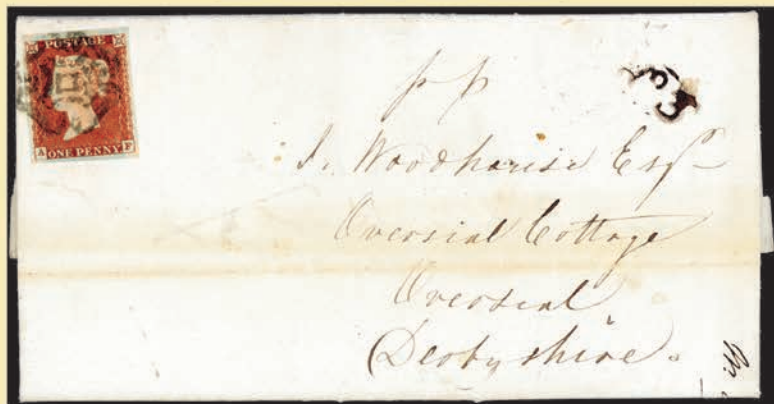 POSTAGE
A ONE PENNY F
p p
J. Woodhouse Esqr
Overseal Cottage
Overseal
Derbyshire.